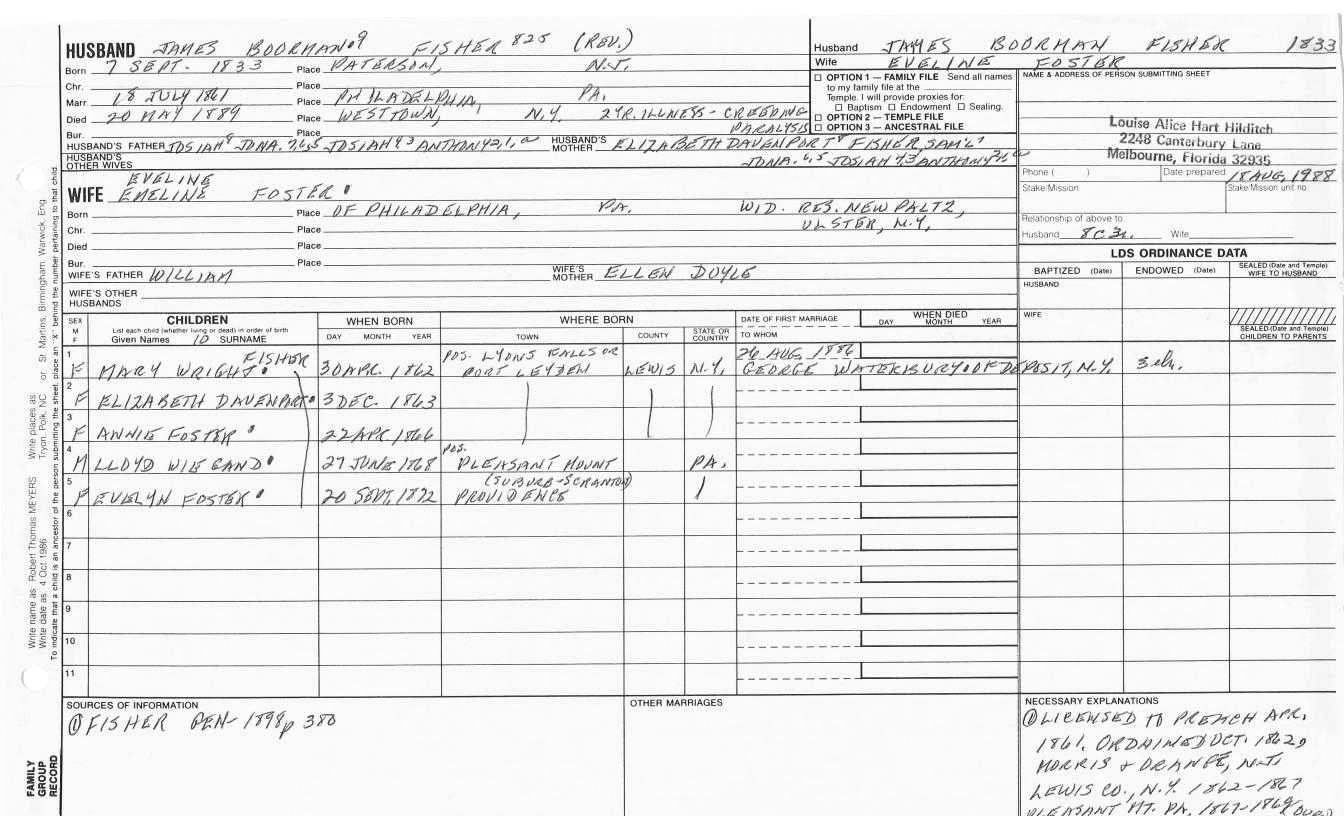 HUSBAND JAMES BOORMAN 9 FISHER 825 (REV.)
Born 7 SEPT. 1833 Place PATERSON, N.J.
Chr. Place
Marr. 18 JULY 1861 Place PHILADELPHIA, PA.
Died 20 MAY 1889 Place WESTTOWN, N.Y. 2 YR. ILLNESS - CREEPING
Bur. Place PARALYSIS
HUSBAND'S FATHER JOSIAH 8 JONA. 7,6,5 JOSIAH 4,3 ANTHONY 2,1,a HUSBAND'S MOTHER ELIZABETH DAVENPORT 8 FISHER, SAM'L 7
HUSBAND'S OTHER WIVES JONA. 6,5 JOSIAH 4,3 ANTHONY 2,1,a
EVELINE
WIFE EMELINE FOSTER
Born Place OF PHILADELPHIA, PA. WID. RES. NEW PALTZ,
Chr. Place ULSTER, N.Y.
Died Place
Bur. Place
WIFE'S FATHER WILLIAM WIFE'S MOTHER ELLEN DOYLE
WIFE'S OTHER HUSBANDS
Husband JAMES BOORMAN FISHER 1833
Wife EVELINE FOSTER
☐ OPTION 1 — FAMILY FILE Send all names
to my family file at the
Temple. I will provide proxies for:
☐ Baptism ☐ Endowment ☐ Sealing.
☐ OPTION 2 — TEMPLE FILE
☐ OPTION 3 — ANCESTRAL FILE
NAME & ADDRESS OF PERSON SUBMITTING SHEET
Louise Alice Hart Hilditch
2248 Canterbury Lane
Melbourne, Florida 32935
Phone ( ) Date prepared 18 AUG, 1988
Stake/Mission Stake/Mission unit no.
Relationship of above to
Husband 8C3r. Wife
LDS ORDINANCE DATA
BAPTIZED (Date) ENDOWED (Date) SEALED (Date and Temple) WIFE TO HUSBAND
HUSBAND
WIFE
SEALED (Date and Temple) CHILDREN TO PARENTS
SEX M F CHILDREN WHEN BORN WHERE BORN DATE OF FIRST MARRIAGE WHEN DIED
List each child (whether living or dead) in order of birth
Given Names 10 SURNAME DAY MONTH YEAR TOWN COUNTY STATE OR COUNTRY TO WHOM DAY MONTH YEAR
1 FISHER POS. LYONS FALLS OR 26 AUG. 1886
F MARY WRIGHT 30 APR. 1862 PORT LEYDEN LEWIS N.Y. GEORGE WATERBURY OF DEPOSIT, N.Y. 3 ch.
2
F ELIZABETH DAVENPORT 3 DEC. 1863
3
F ANNIE FOSTER 22 APR. 1866
4 POS.
M LLOYD WIEGAND 27 JUNE 1868 PLEASANT MOUNT PA.
5 (SUBURB-SCRANTON)
F EVELYN FOSTER 20 SEPT. 1872 PROVIDENCE
6
7
8
9
10
11
SOURCES OF INFORMATION
① FISHER GEN- 1898 p 380
OTHER MARRIAGES
NECESSARY EXPLANATIONS
① LICENSED TO PREACH APR.
1861. ORDAINED OCT. 1862,
MORRIS & ORANGE, N.J.
LEWIS CO., N.Y. 1862-1867
PLEASANT MT. PA. 1867-1869 OVER
Write name as: Robert Thomas MEYERS Write places as: Tryon, Polk, NC or St. Martins, Birmingham, Warwick, Eng.
Write date as: 4 Oct 1986
To indicate that a child is an ancestor of the person submitting the sheet, place an "X" behind the number pertaining to that child
FAMILY
GROUP
RECORD